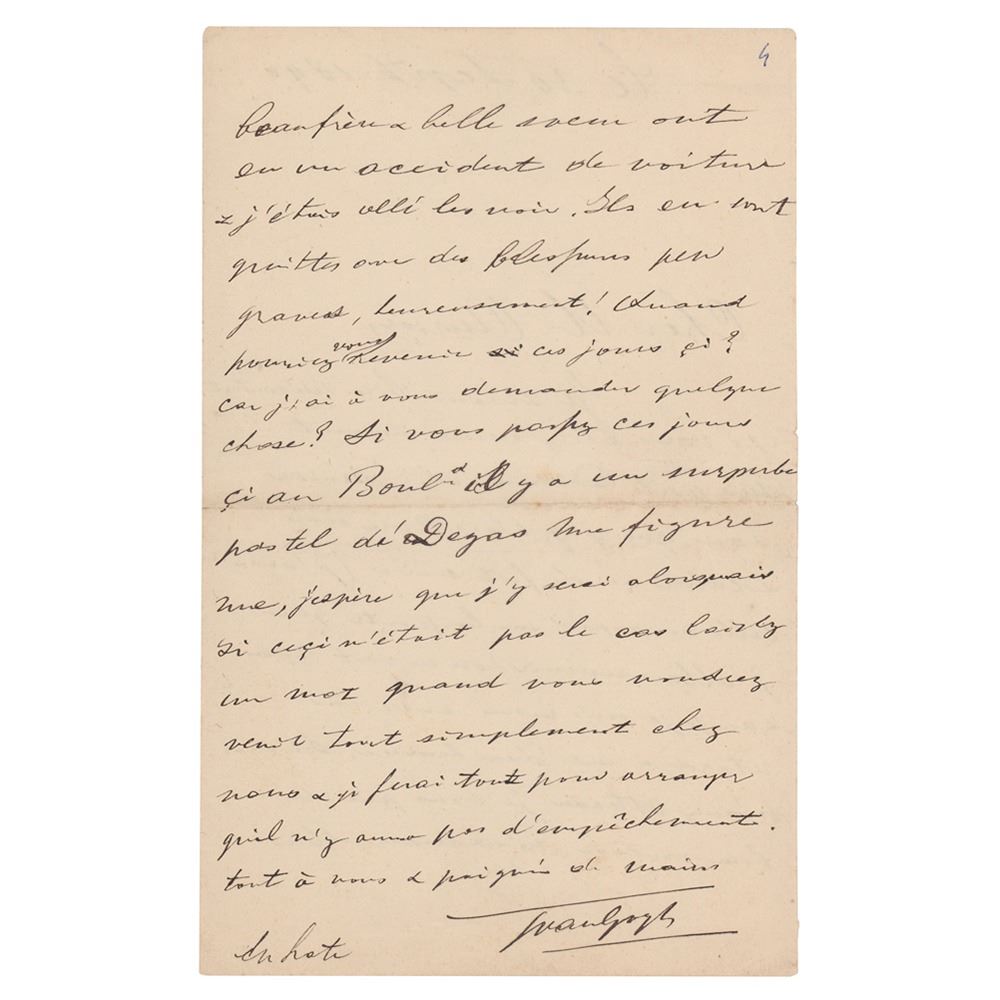 4
beaufrère & belle soeur ont
eu un accident de voiture
& j'étais allé les voir. Ils en sont
quittes avec des blessures peu
graves, heureusement! Quand
pourriez vous revenir ces jours çi?
car j'ai à vous demander quelque
chose? Si vous passez ces jours
çi au Bould il y a un surperbe
pastel de Degas Une figure
nue, j'espère que j'y serai alors, mais
si ceçi n'était pas le cas laissez
un mot quand vous voudrez
venir tout simplement chez
nous & je ferai tout pour arranger
qu'il n'y aura pas d'empêchement.
tout à vous & poignée de mains
TvanGogh
En hate